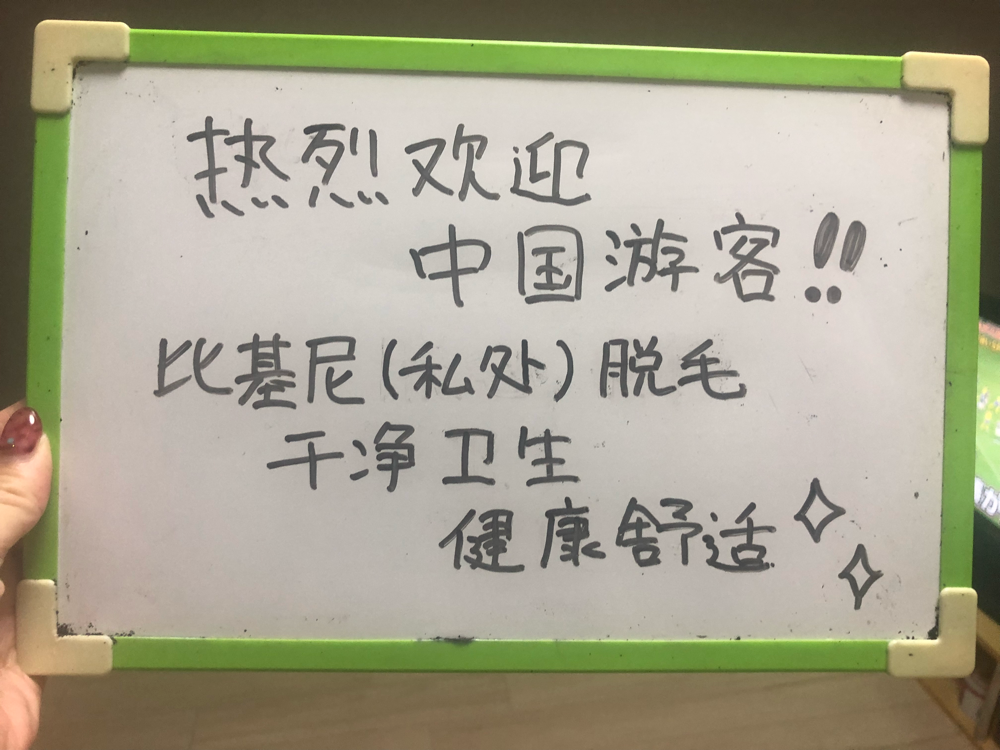 热烈欢迎
中国游客!!
比基尼(私处)脱毛
干净卫生
健康舒适